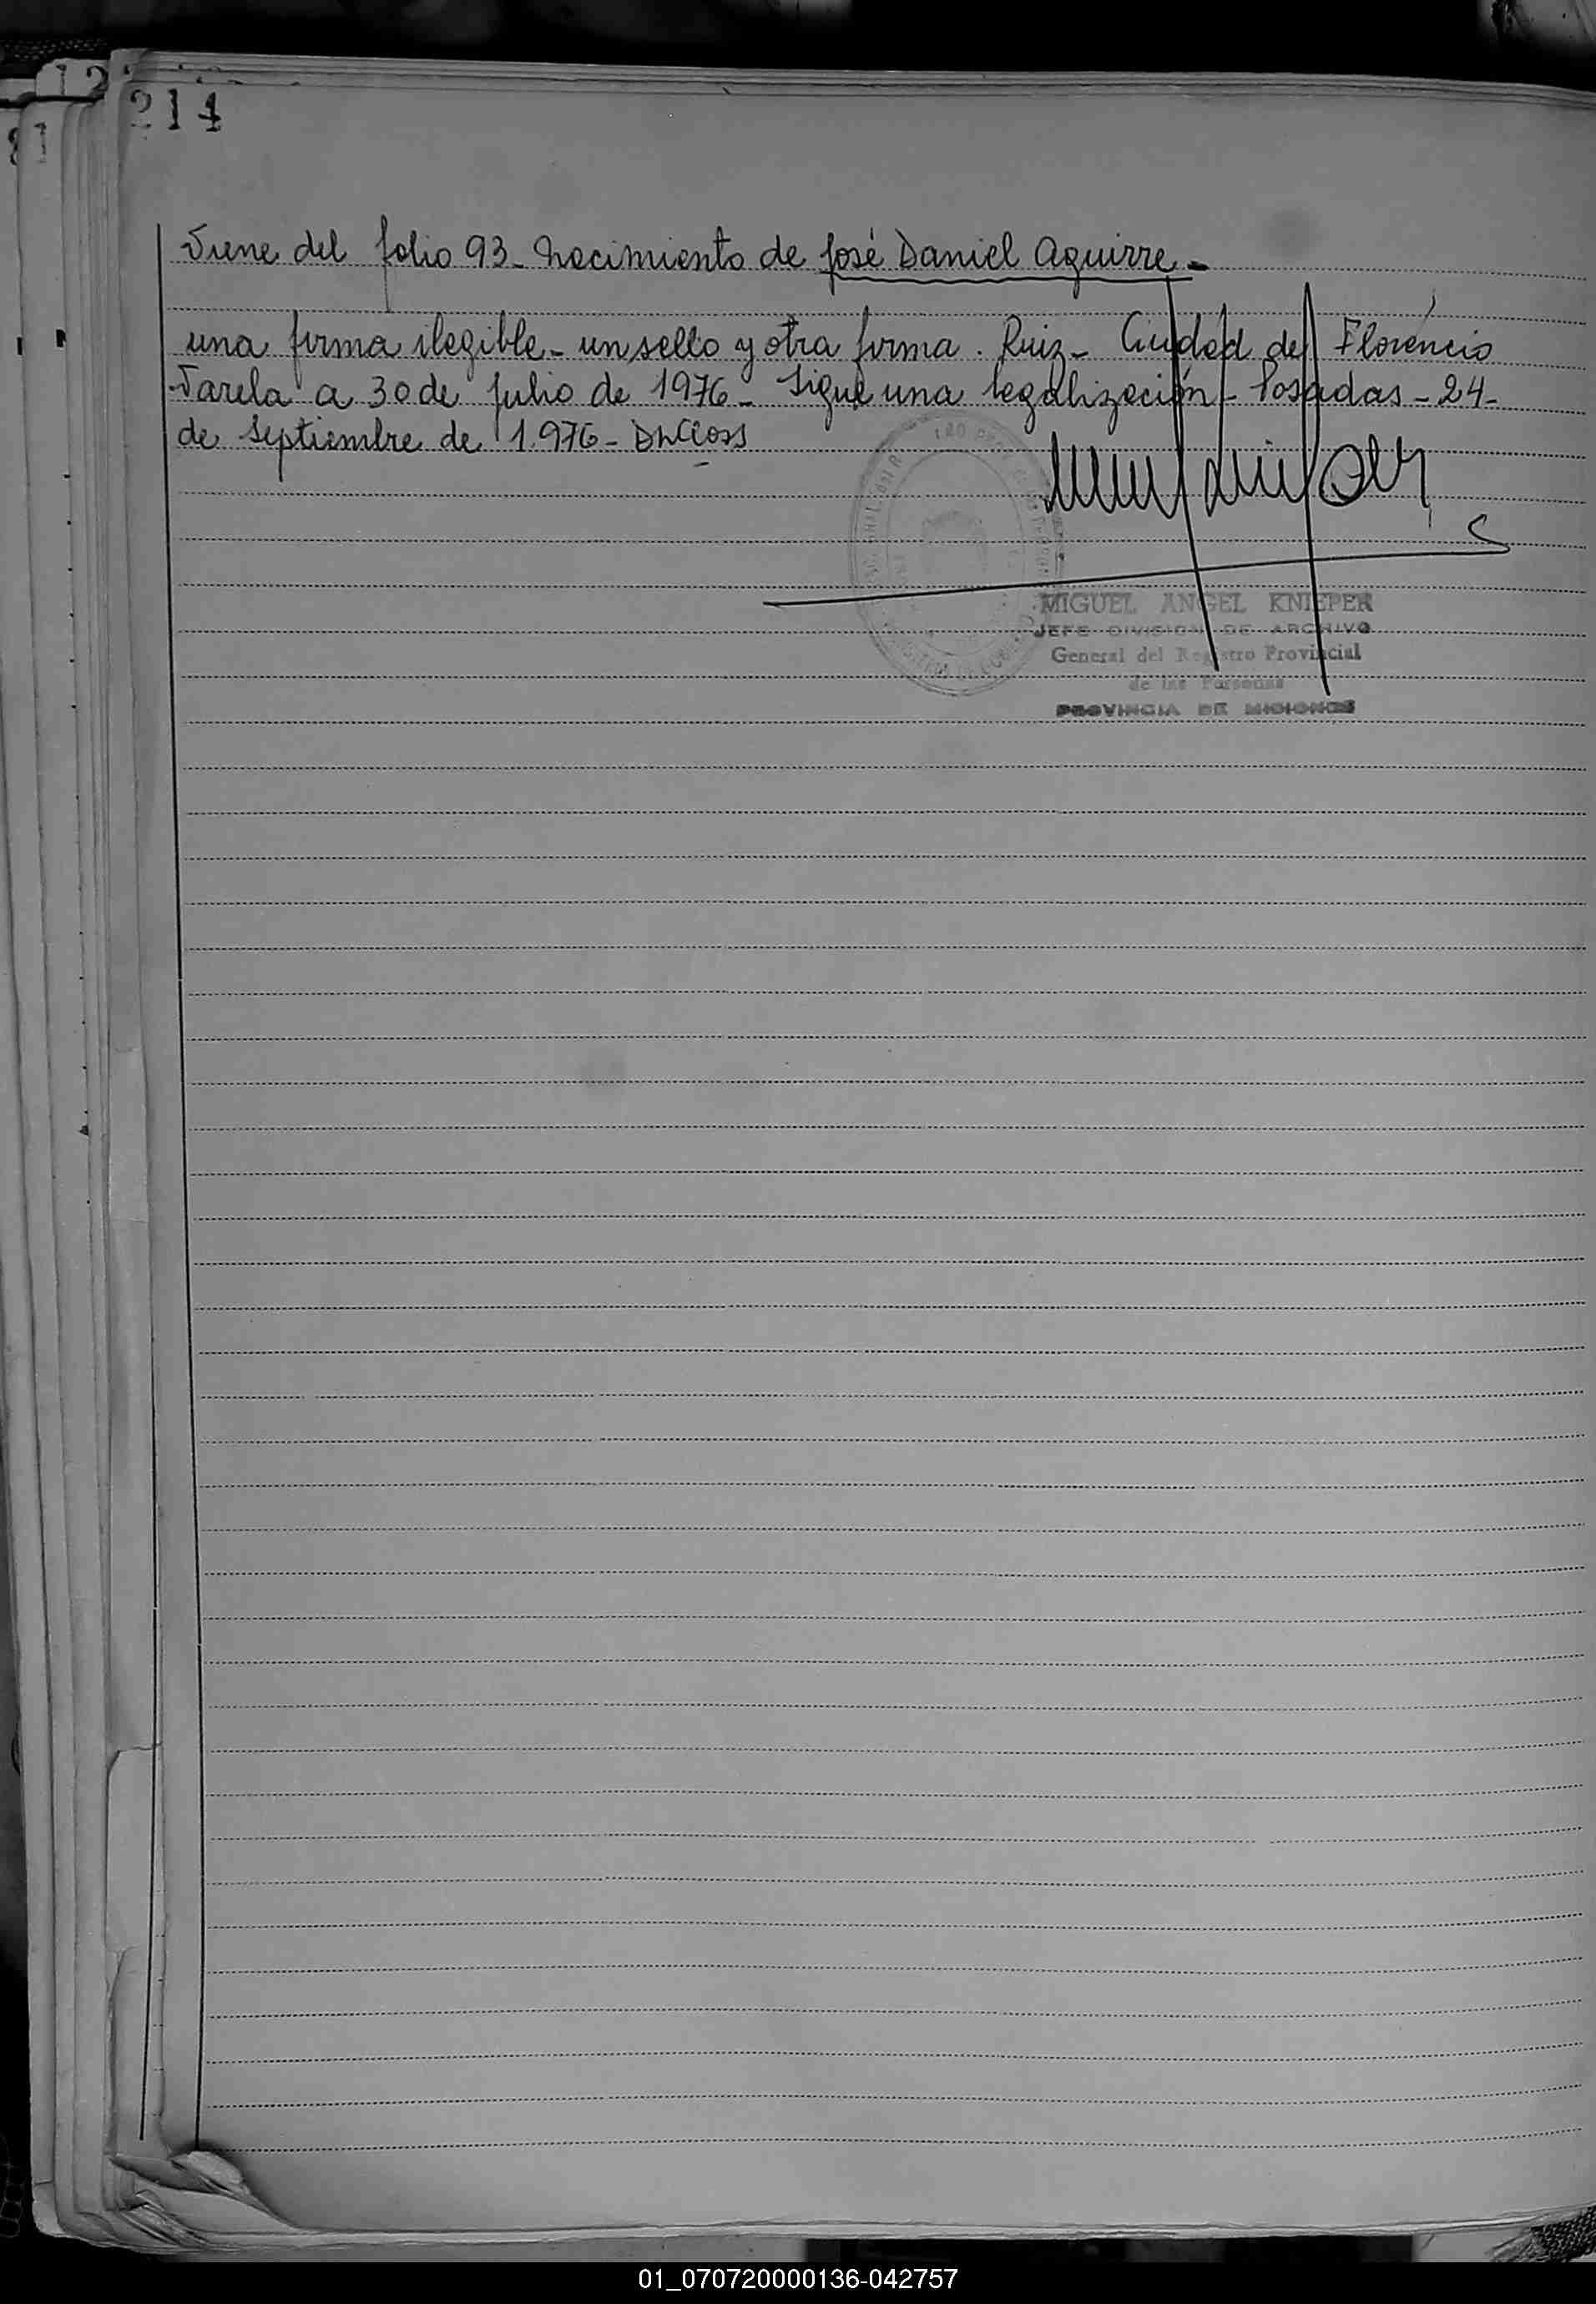 214
Viene del folio 93- Nacimiento de José Daniel Aguirre-
una firma ilegible- un sello y otra firma. Ruiz- Ciudad de Florencio
Varela a 30 de Julio de 1976- Sigue una legalización- Posadas- 24-
de Septiembre de 1.976-
MIGUEL ANGEL KNIEPER
JEFE DIVISION DE ARCHIVO
General del Registro Provincial
de las Personas
PROVINCIA DE MISIONES
01_070720000136-042757